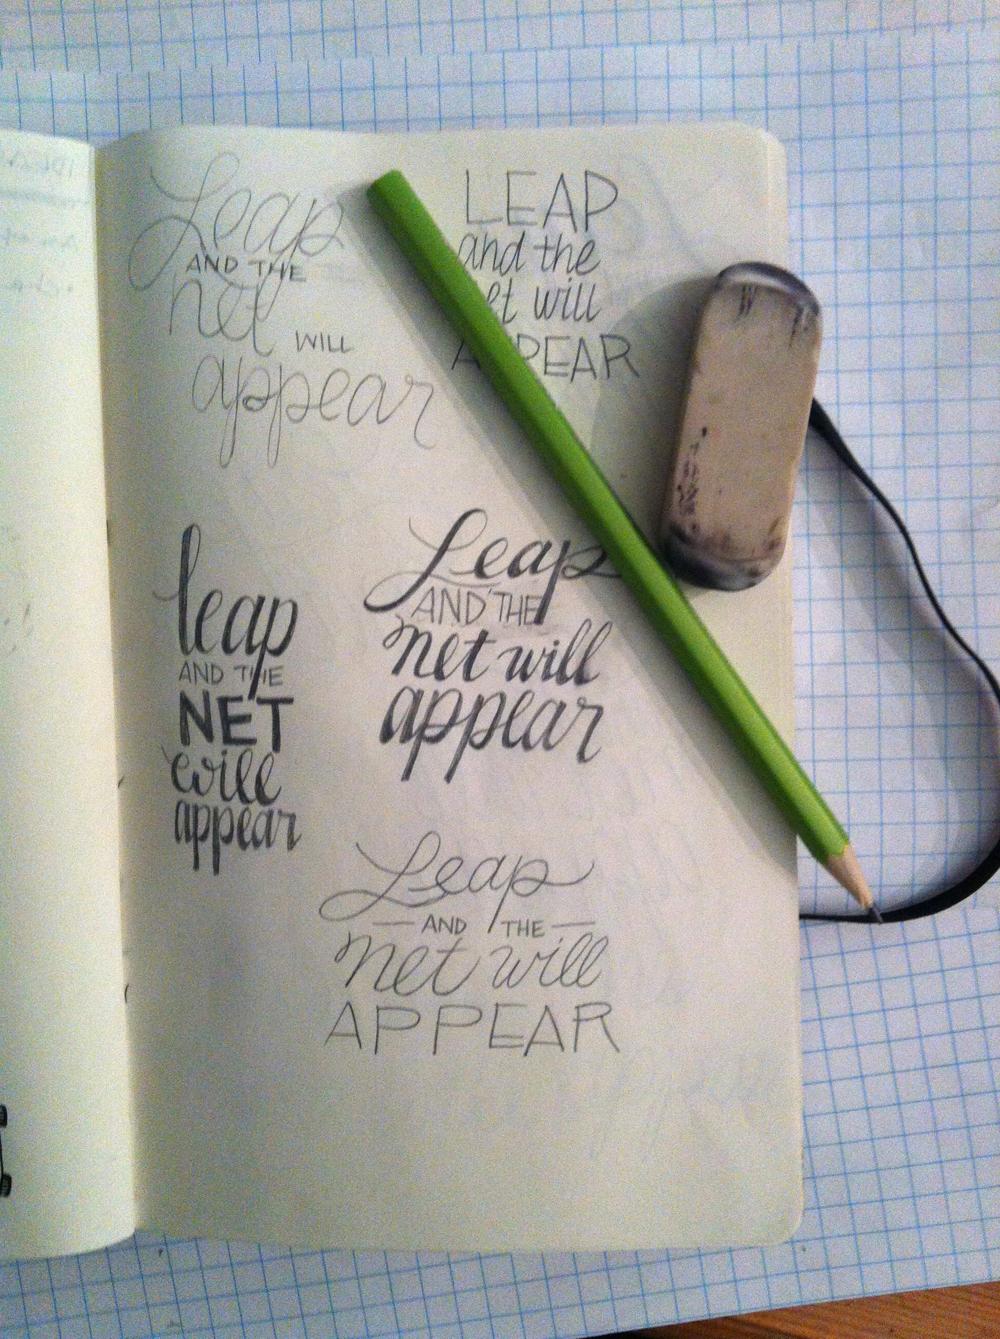 Leap
AND THE
net
WILL
appear
LEAP
and the
net will
APPEAR
leap
AND THE
NET
will
appear
Leap
AND THE
net will
appear
Leap
— AND THE —
net will
APPEAR